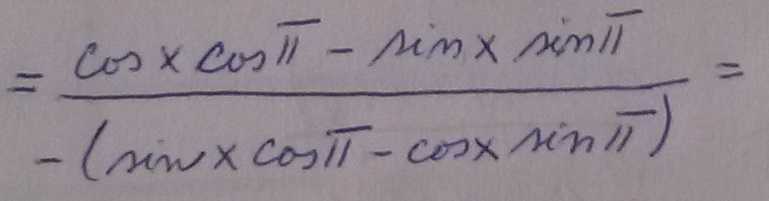 = cos x cos π - sin x sin π =
-(sin x cos π - cos x sin π)